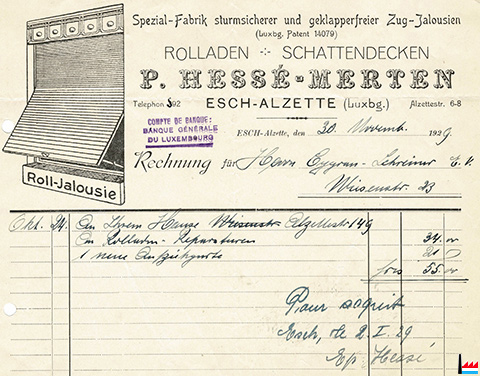 Spezial-Fabrik sturmsicherer und geklapperfreier Zug-Jalousien
(Luxbg. Patent 14079)
ROLLADEN SCHATTENDECKEN
P. HESSÉ-MERTEN
Telephon 802 ESCH-ALZETTE (Luxbg.) Alzettestr. 6-8
COMPTE DE BANQUE:
BANQUE GÉNÉRALE
DU LUXEMBOURG
ESCH-Alzette, den 30. Novemb. 1929
Rechnung für Herrn Schreiner
Wiesenstr. 23
Roll-Jalousie
Okt. 24. An Ihrem Hause Wiesenstr Alzettestr 149
An Rolladen-Reparaturen 34.00
1 neue 21
frcs 55.00
Pour acquit
Esch, le 2.I.29
Hessé